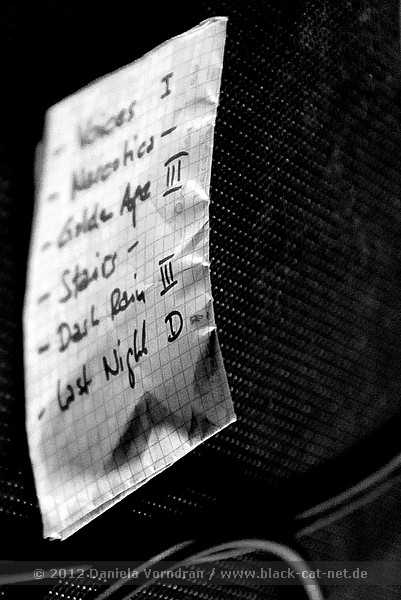 - Voices I
- Narcotica -
- Golden Age III
- Stairs -
- Dark Rain III
- Last Night D
© 2012 Daniela Vorndran / www.black-cat-net.de